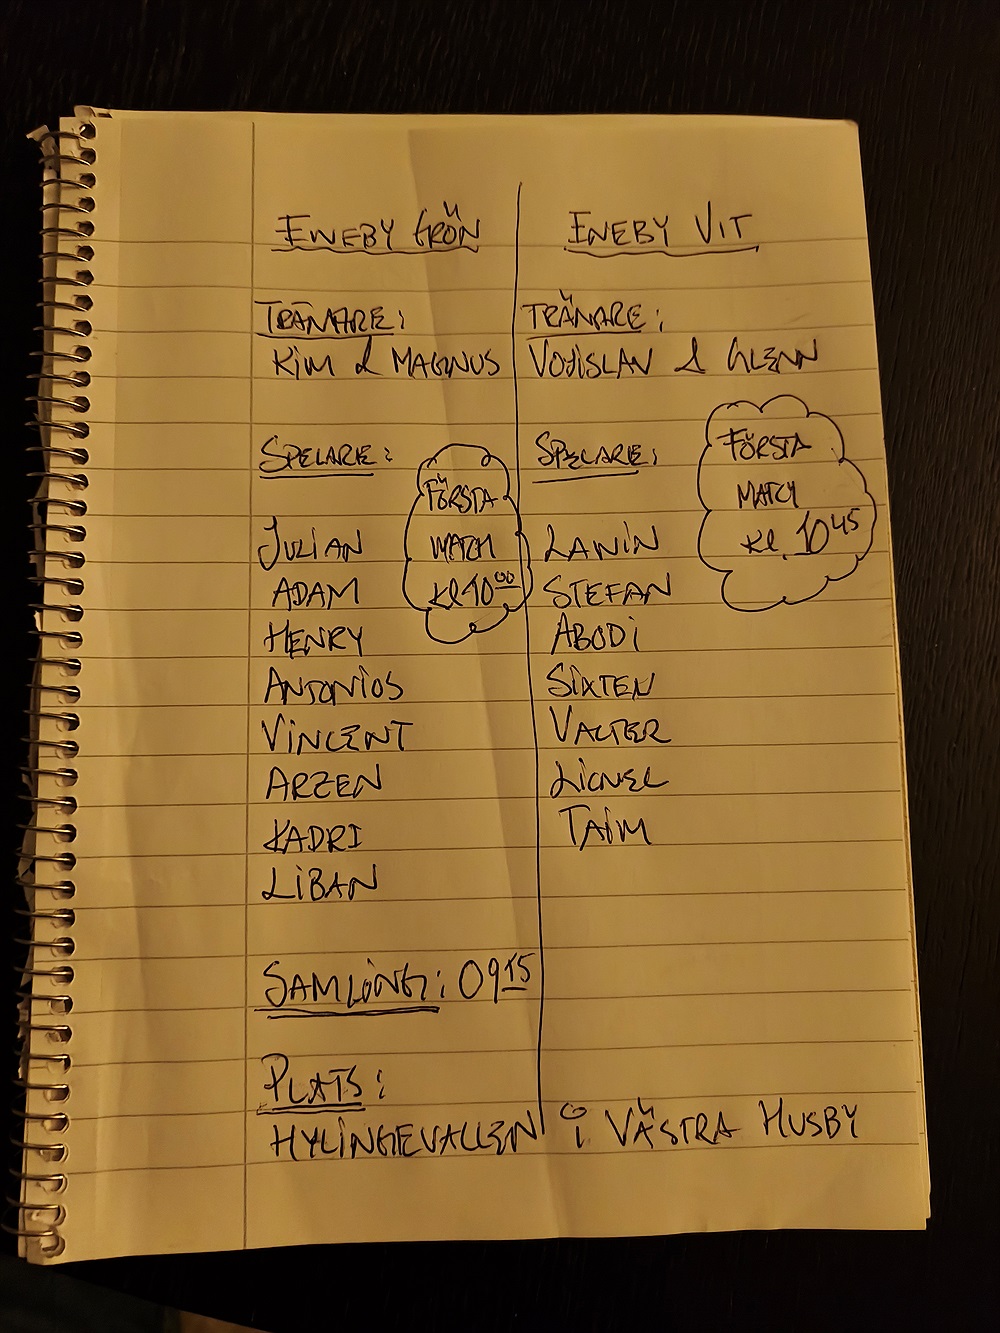 ENEBY GRÖN
TRÄNARE:
KIM & MAGNUS
SPELARE:
FÖRSTA
MATCH
KL 10 00
JULIAN
ADAM
HENRY
ANTONIOS
VINCENT
ARZEN
KADRI
LIBAN
ENEBY VIT
TRÄNARE:
VOJISLAV & GLENN
SPELARE:
FÖRSTA
MATCH
KL. 10 45
LANIN
STEFAN
ABODI
SIXTEN
VALTER
LIONEL
TAIM
SAMLING: 09 15
PLATS:
HYLINGEVALLEN i VÄSTRA HUSBY